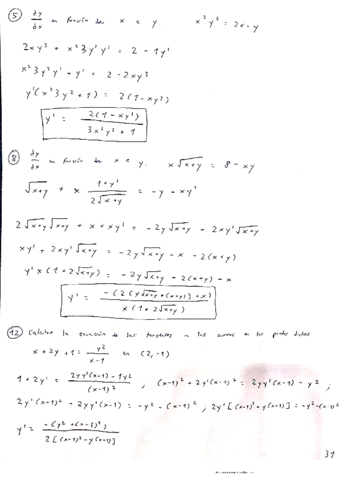 ⑤ dy/dx en función de x e y x²y³ = 2x - y
2xy³ + x²3y²y' = 2 - 1y'
x²3y²y' + y' = 2 - 2xy³
y'(x²3y² + 1) = 2(1 - xy³)
y' = 2(1 - xy³) / 3x²y² + 1
⑧ dy/dx en función de x e y. x√x+y = 8 - xy
√x+y + x (1 + y') / 2√x+y = -y - xy'
2√x+y √x+y + x + xy' = -2y√x+y - 2xy'√x+y
xy' + 2xy'√x+y = -2y√x+y - x - 2(x+y)
y' x (1 + 2√x+y) = -2y√x+y - 2(x+y) - x
y' = -(2(y√x+y + (x+y)) + x) / x(1 + 2√x+y)
⑫ Calcular la ecuación de las tangentes a las curvas en los puntos dados
x + 2y + 1 = y² / x-1 en (2, -1)
1 + 2y' = 2yy'(x-1) - 1y² / (x-1)² , (x-1)² + 2y'(x-1)² = 2yy'(x-1) - y² ,
2y'(x-1)² - 2yy'(x-1) = -y² - (x-1)² , 2y'[(x-1)² - y(x-1)] = -y² - (x-1)²
y' = -(y² + (x-1)²) / 2[(x-1)² - y(x-1)]
31